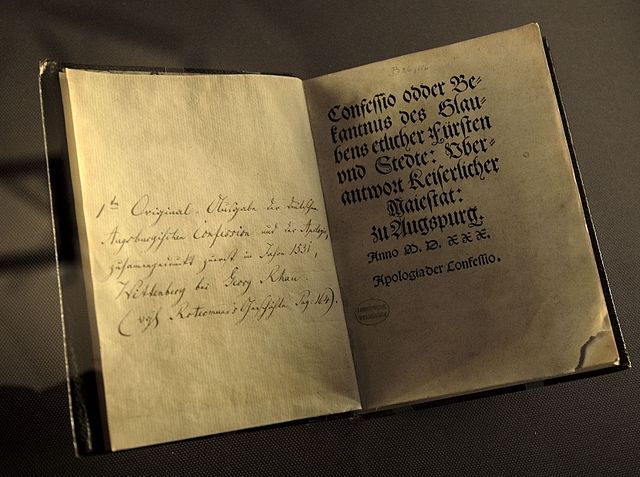 1te Original-Ausgabe der deutschen
Augsburgischen Confession und der Apologie,
zusammengedruckt zuerst im Jahre 1531,
Wittenberg bei Georg Rhau.
(vgl. Rotermund's Geschichte Pag: 164).
Confessio odder Be-
kantnus des Glau-
bens etlicher Fürsten
vnd Stedte: Vber-
antwort Keiserlicher
Maiestat:
zu Augspurg.
Anno M. D. XXX.
Apologia der Confessio.